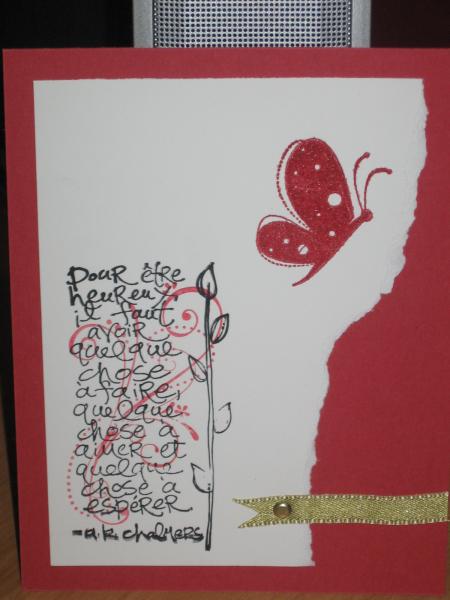 Pour être
heureux,
il faut
avoir
quelque
chose
à faire,
quelque
chose à
aimer et
quelque
chose à
espérer
-a.k. chalmers